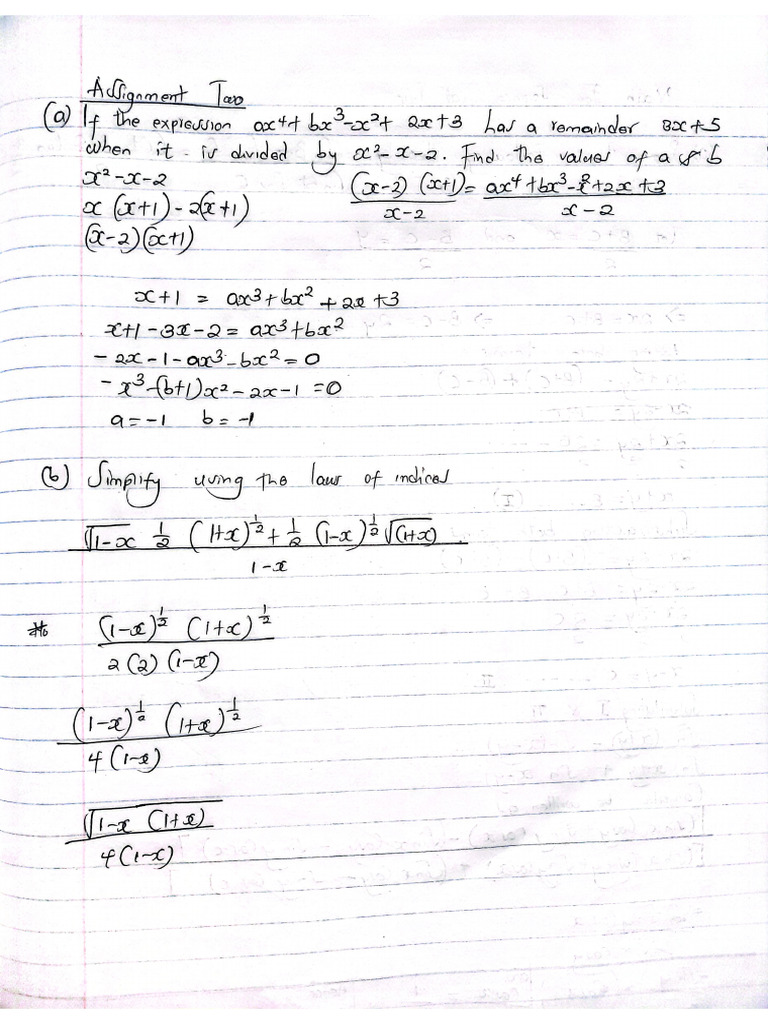 Assignment Two
(a) If the expression ax⁴ + bx³ - x² + 2x + 3 has a remainder 3x + 5
when it is divided by x² - x - 2. Find the values of a & b
x² - x - 2
x (x+1) - 2(x+1)
(x-2)(x+1)
(x-2)(x+1)/x-2 = ax⁴ + bx³ - x² + 2x + 3/x-2
x+1 = ax³ + bx² + 2x + 3
x+1 - 3x - 2 = ax³ + bx²
- 2x - 1 - ax³ - bx² = 0
- x³ - (b+1)x² - 2x - 1 = 0
a = -1 b = -1
(b) Simplify using the laws of indices
√1-x ½ (1+x)^½ + ½ (1-x)^½ √(1+x)
1-x
(1-x)^½ (1+x)^½
2(2)(1-x)
(1-x)^½ (1+x)^½
4(1-x)
√1-x (1+x)
4(1-x)